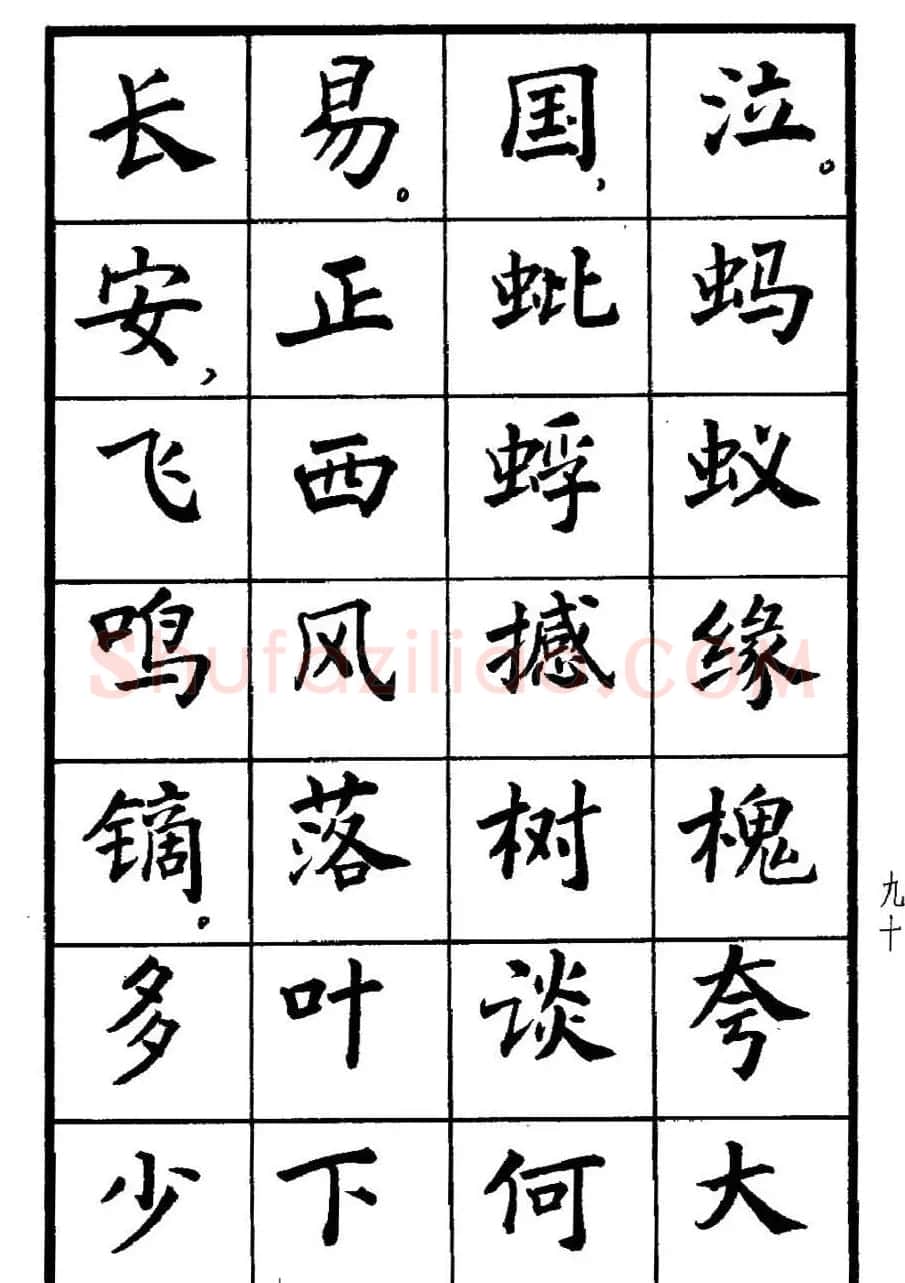 泣。蚂蚁缘槐夸大
国,蚍蜉撼树谈何
易。正西风落叶下
长安,飞鸣镝。多少
九十
Shufaziliao.COM